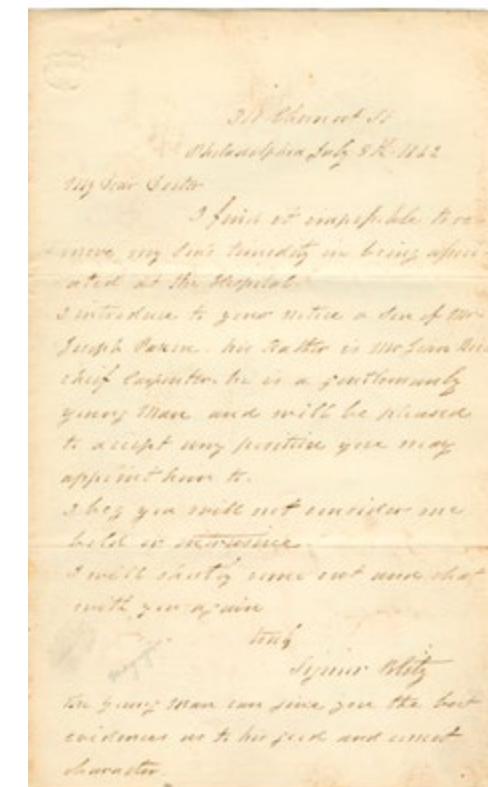 Chesnut St
Philadelphia July 8th 1862
My Dear Doctor
I find it impossible to re-
move my Son's timidity in being associ-
ated at the Hospital.
I introduce to your notice a Son of Mr
Joseph his Father is McLean
chief Carpenter. he is a gentlemanly
young Man and will be pleased
to accept any position you may
appoint him to.
I beg you will not consider me
bold or
I will shortly come out and chat
with you again
truly
Signor Blitz
the young Man can give you the best
evidences as to his good and
character.